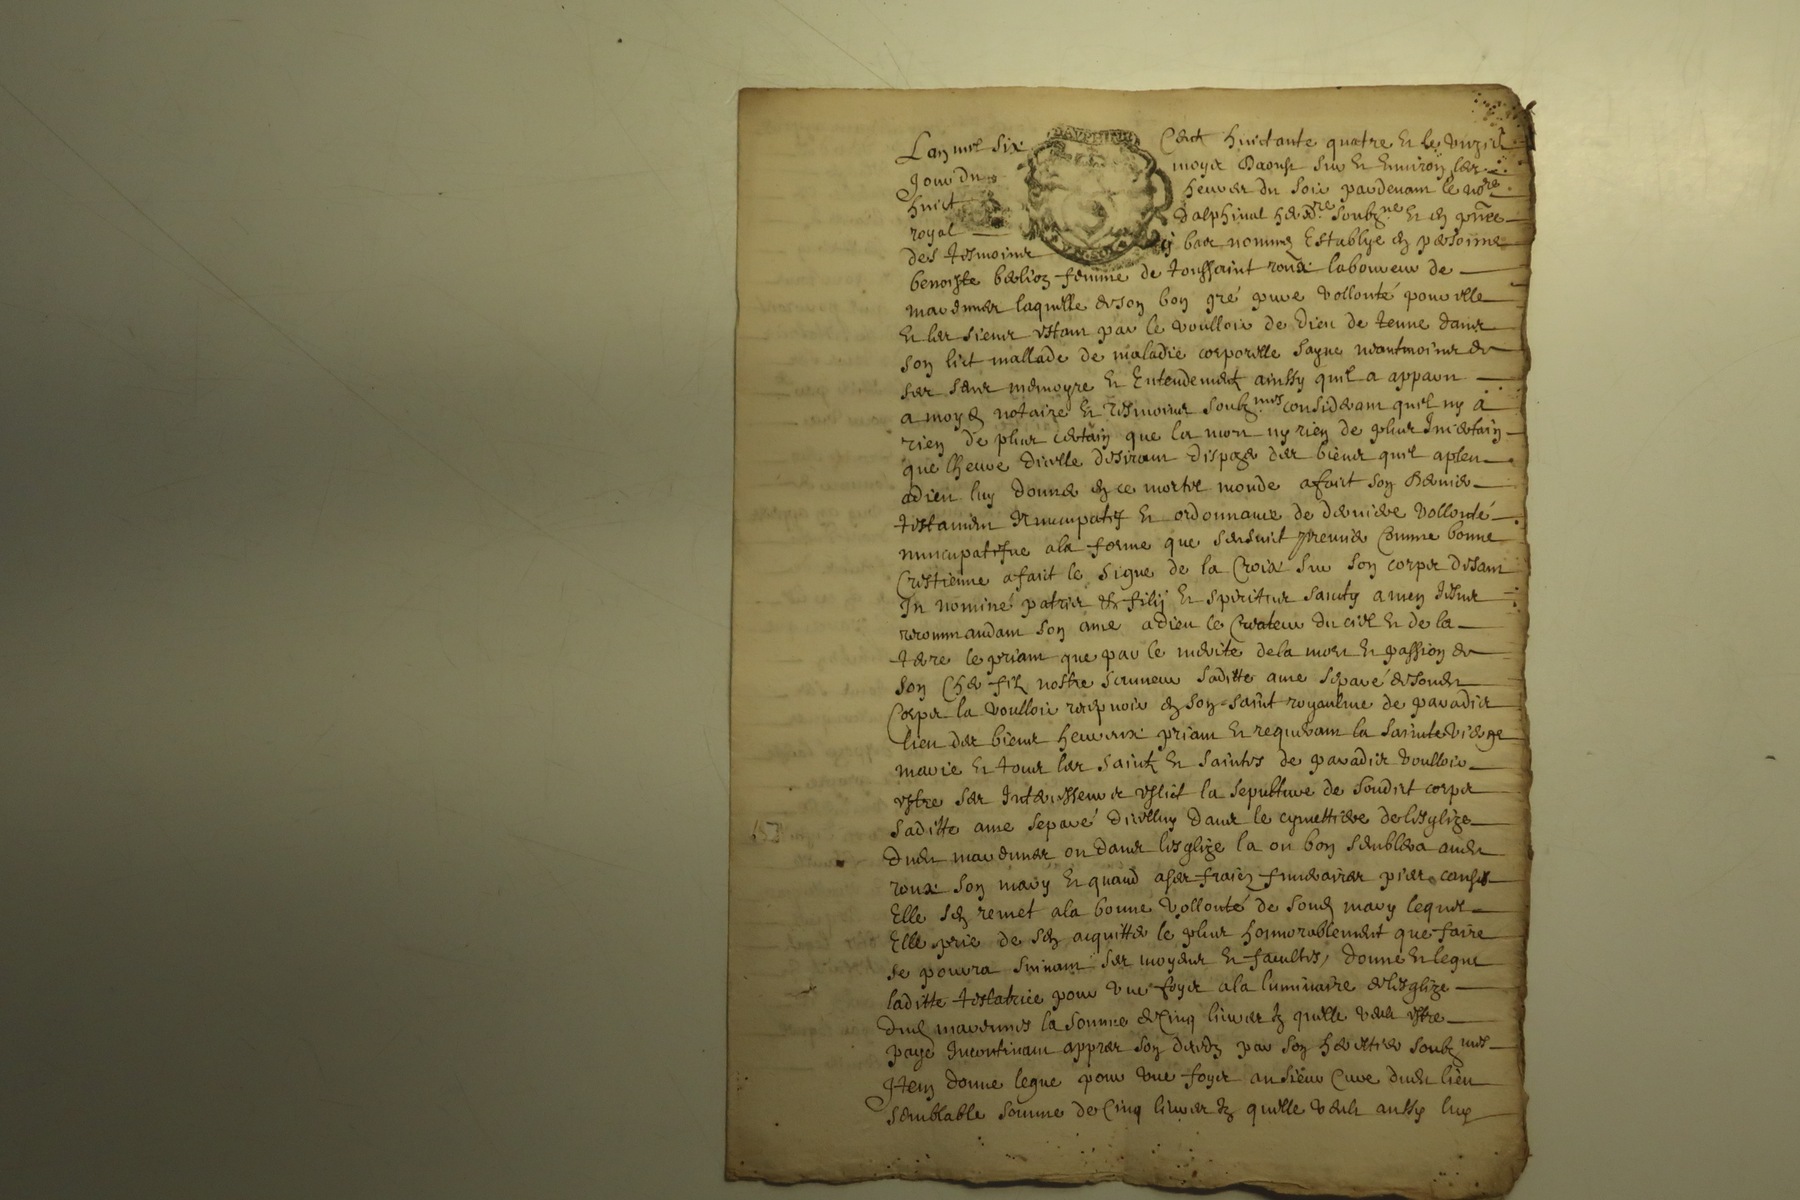 Lan mil six Cent huictante quatre et le unzie
Jour du moys Daoust sur et Environ les
huict heures du soir pardevant le no.re
royal dalphinal hered.re soubz.ne et en pnce
des tesmoins bas nommes Establye en personne
benoiste femme de toussaint roux laboureur de
mardennes laquelle de son bon gré pure vollonté pour elle
et les siens estant par le voulloir de dieu detenue dans
son lict mallade de maladie corporelle sayne neantmoins de
ses sens memoyre et Entendement ainssy quil a apparu
a moyd notaire et tesmoins soubz.nes considerant quil ny a
rien de plus certain que la mort ny rien de plus Incertain
que lheure dicelle desirant disposer des biens quil a pleu
a dieu luy donner en ce mortel monde a faict son dernier
testament Nuncupatif et ordonnance de derniere vollonté
nuncupatifve a la forme que sensuit premier Comme bonne
Crestienne a faict le signe de la Croix sur son corps disant
In nomine patris et filij et spiritus sancty amen
recommandant son ame a dieu le Createur du ciel et de la
terre le priant que par le merite de la mort et passion de
son Cher filz nostre sauveur saditte ame separé de sond
Corps la voulloir recepvoir en son saint royaulme de paradis
lieu des biens heureux priant et requerant la sainte vierge
marie et tous les saintz et saintes de paradis voulloir
estre ses Intercesseurs eslict la sepulture de sondict corps
saditte ame separé dicelluy dans le cymettiere de lesglize
dud mardennes ou dans lesglize la ou bon semblera aud
roux son mary et quand a ses fraiz funeraires pies causes
Elle sen remet a la bonne vollonté de sond mary lequel
Elle prie de sen acquitter le plus honnorablement que faire
se pourra suivant ses moyens et facultes, donne et legue
laditte testatrice pour une foys a la luminaire de lesglize
dud mardennes la somme de Cinq livres tz quelle veut estre
payé Incontinant appres son deces par son heritier soubz.nes
Item donne legue pour une foys au sieur Cure dud lieu
semblable somme de Cinq livres tz quelle veult aussy luy